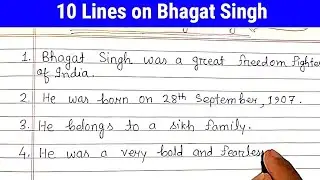 10 Lines on Bhagat Singh
1. Bhagat Singh was a great freedom fighter
of India.
2. He was born on 28th September, 1907.
3. He belongs to a sikh family.
4. He was a very bold and fearless